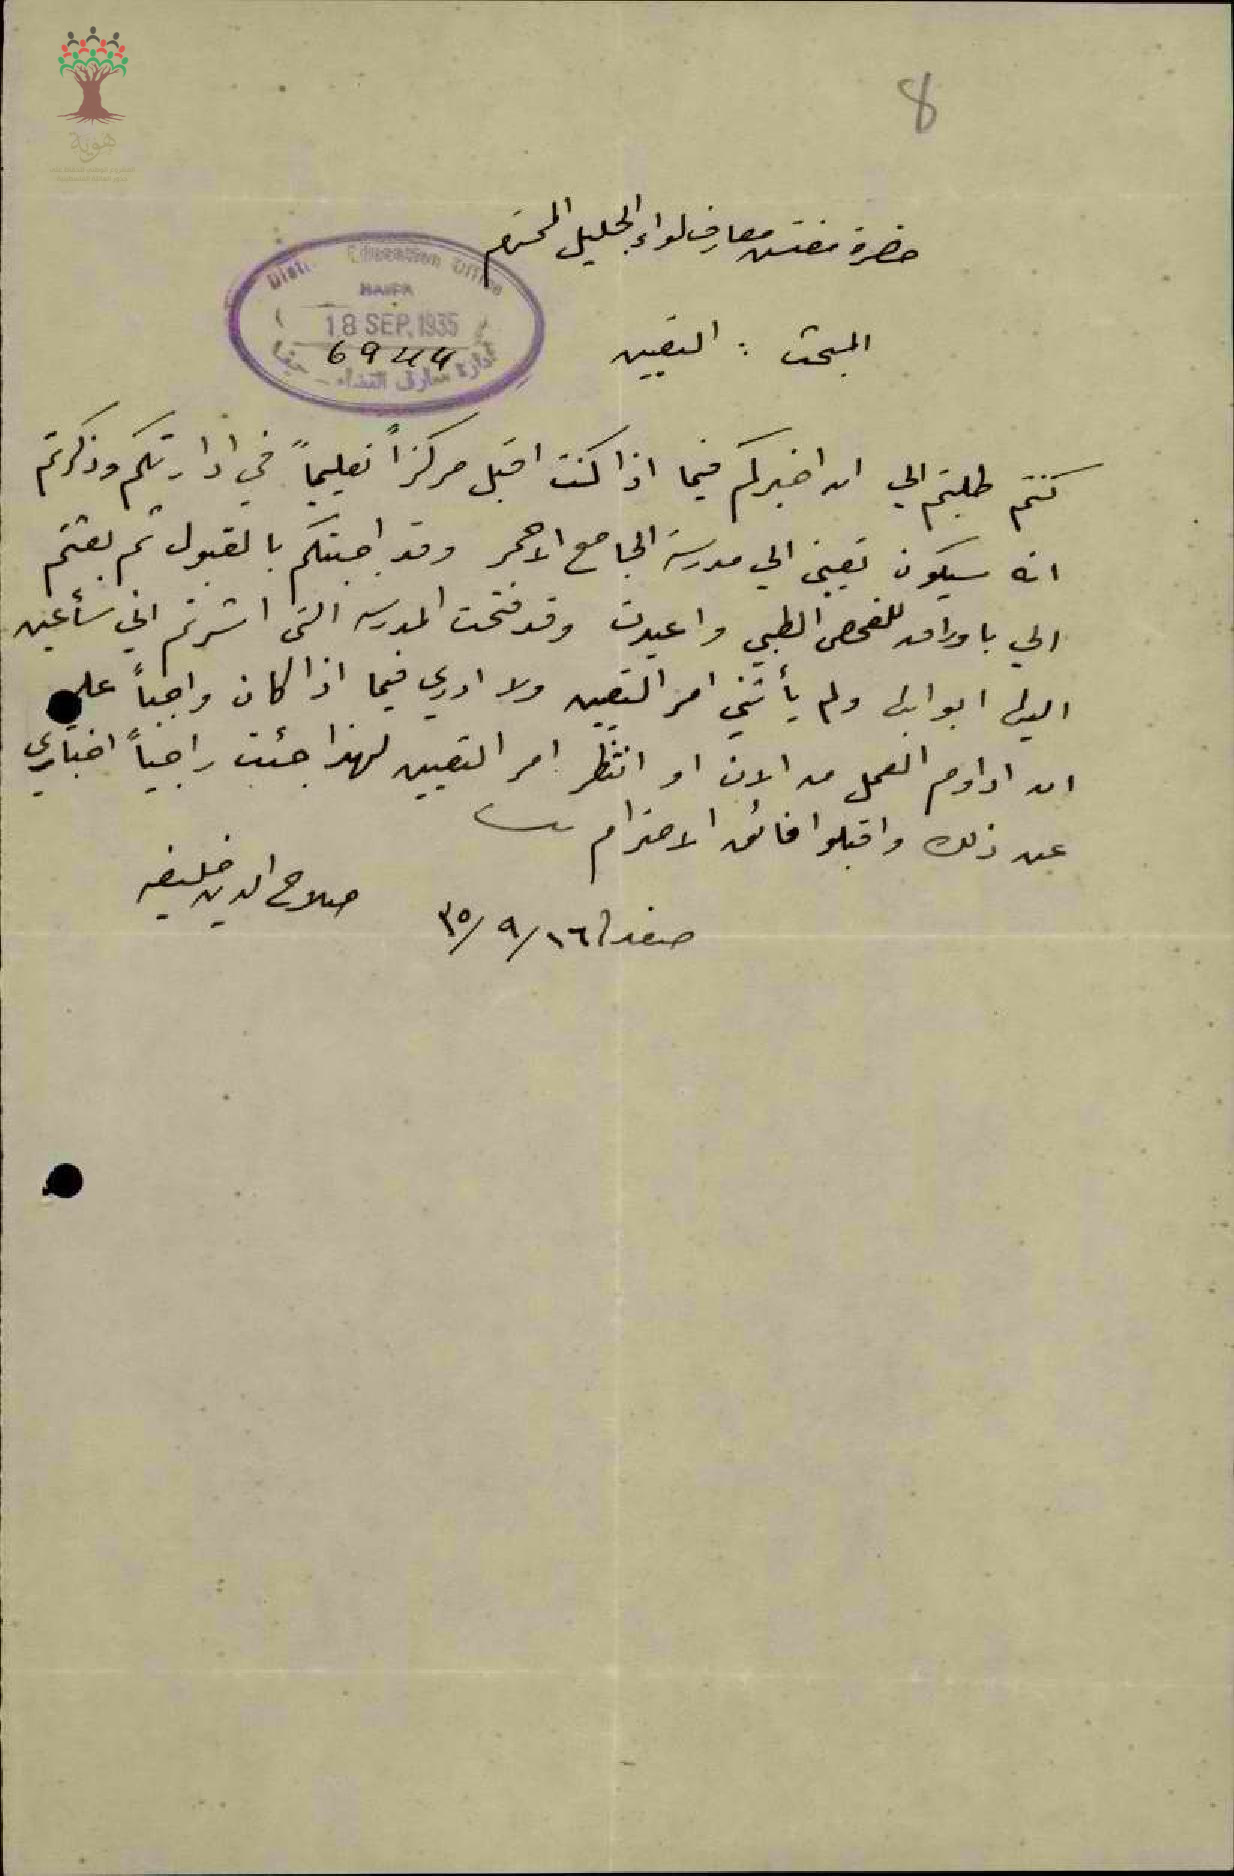 8
هوية
حضرة مفتش معارف لواء الجليل المحترم
District Education Office
HAIFA
18 SEP. 1935
6944
ادارة معارف القضاء - حيفا
المبحث : التعيين
كنتم طلبتم الي ان اخبركم فيما اذا كنت اقبل مركزاً تعليمياً في ادارتكم وذكرتم
انه سيكون تعييني الي مدرسة الجامع الاحمر وقد اجبتكم بالقبول ثم بعثتم
الي باوراق للفحص الطبي واعيدت وقد فتحت المدرسه التي اشرتم اني سأعين
اليها ابوابها ولم يأتني امر التعيين ولا ادري فيما اذا كان واجباً علي
ان اداوم العمل من الان او انتظر امر التعيين لهذا جئت راجياً اخباري
عن ذلك واقبلوا فائق الاحترام
صلاح الدين خليفه
صفد ١٦/٩/٣٥